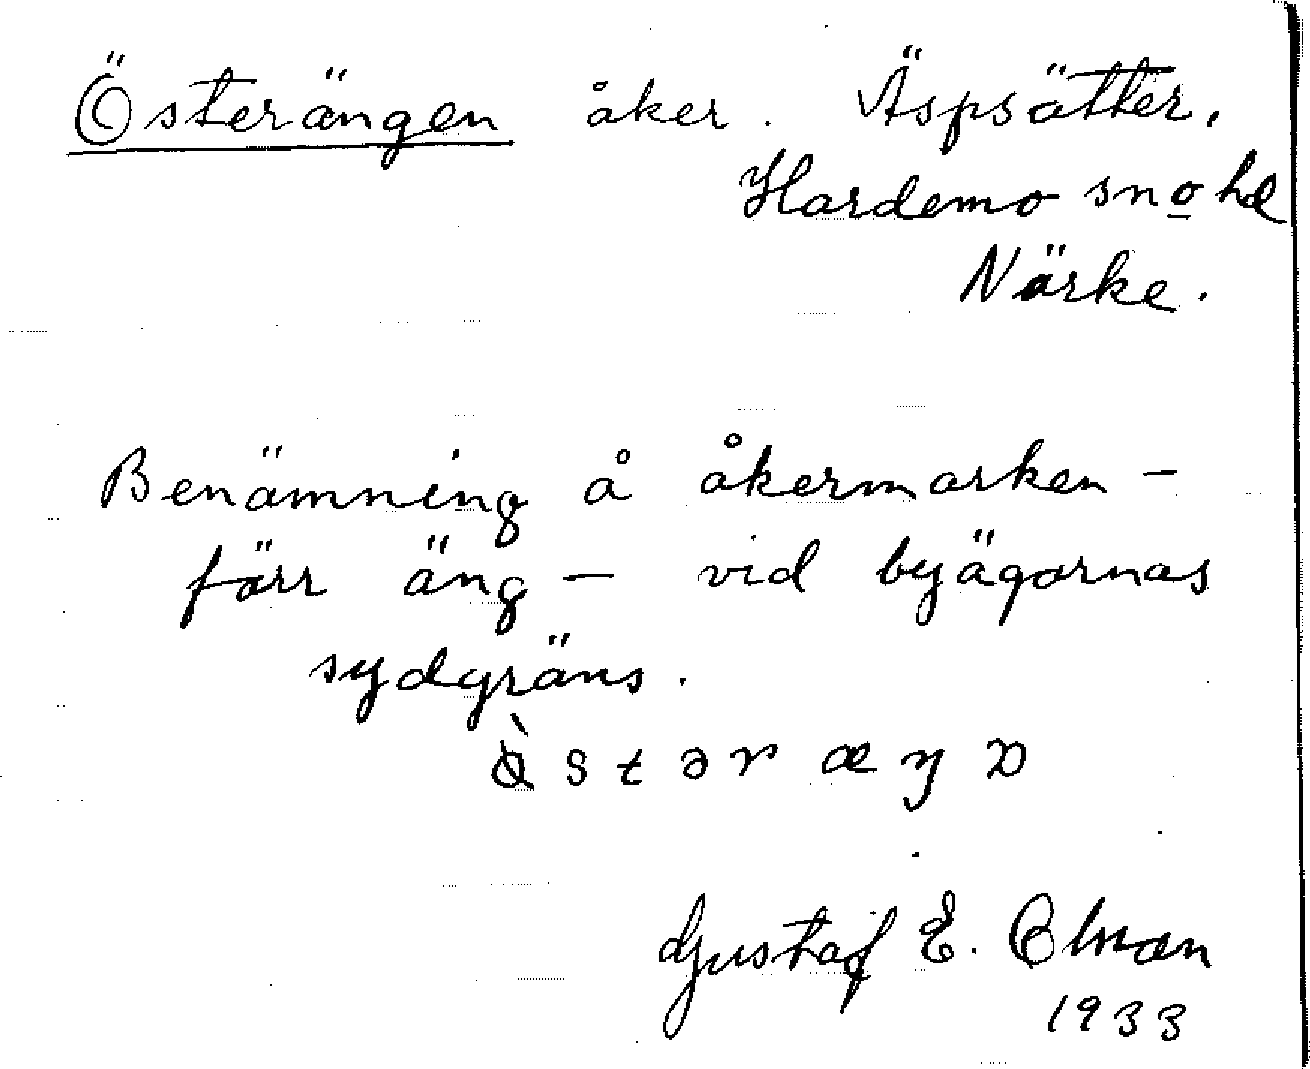 Österängen åker. Äspsätter,
Hardemo sn o hd
Närke.
Benämning å åkermarken –
förr äng – vid byägornas
sydgräns.
Gustaf E.
1933